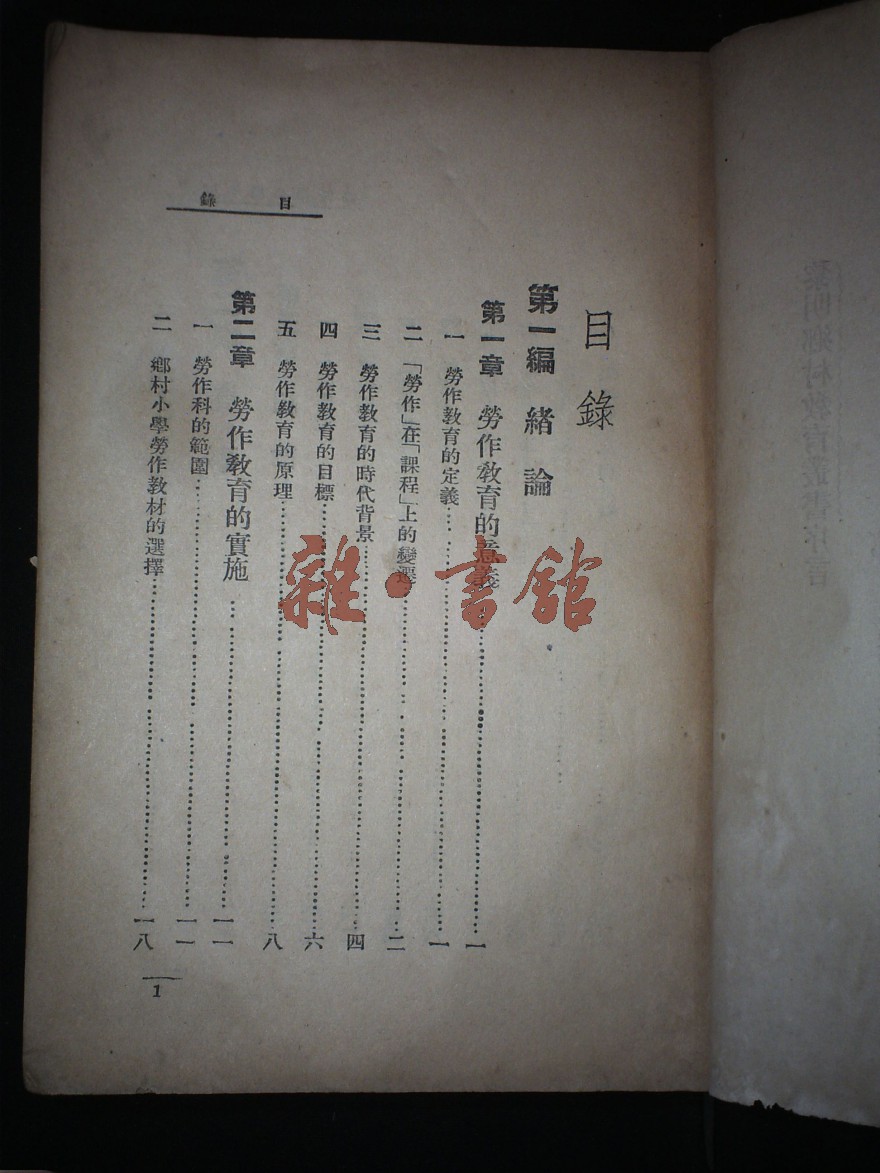 目錄
目錄
第一編 緒論
第一章 勞作教育的意義……一
一 勞作教育的定義……一
二 「勞作」在「課程」上的變遷……二
三 勞作教育的時代背景……四
四 勞作教育的目標……六
五 勞作教育的原理……八
第二章 勞作教育的實施……一一
一 勞作科的範圍……一一
二 鄉村小學勞作教材的選擇……一八
1
雜·書館